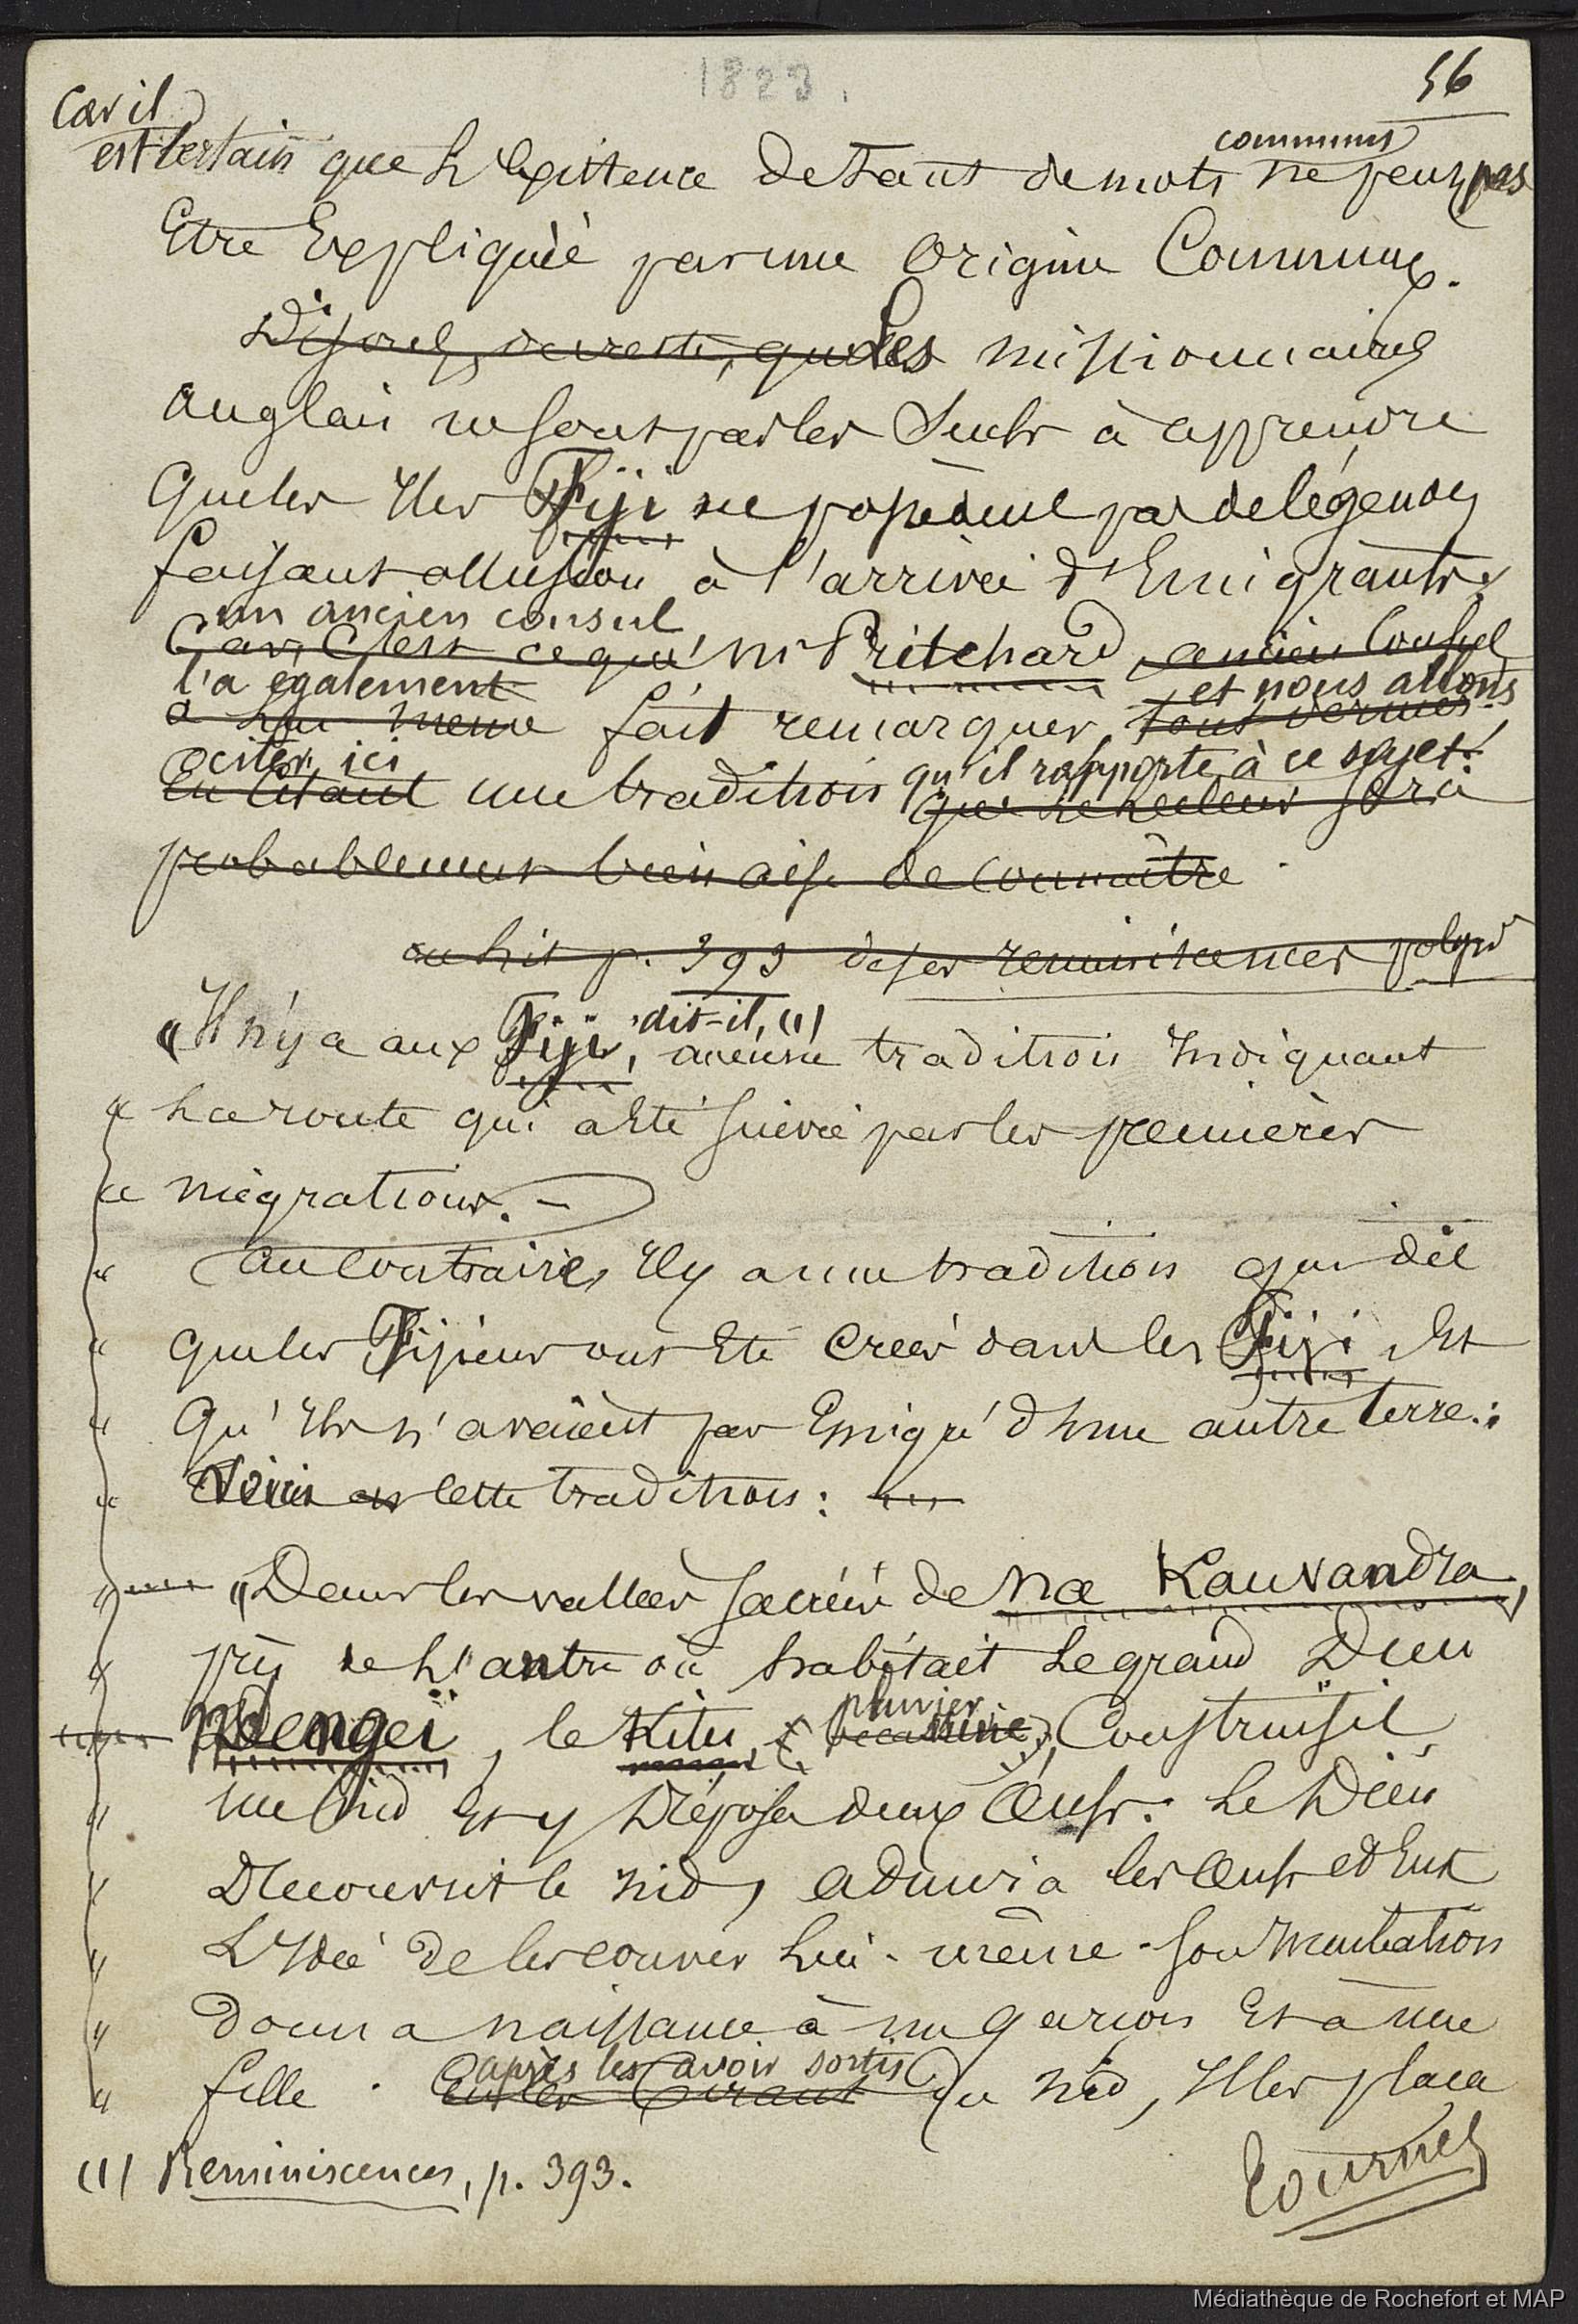 1823.
56
Car il
communs
est certain que l'existence de tant de mots ne peut pas
Etre Expliquée par une Origine Commune.
Disons, du reste, que Les missionnaires
anglais ne sont pas les Seuls à apprendre
que les Iles Fiji ne possèdent pas de légendes
faisant allusion à l'arrivée d'Emigrants;
un ancien consul
Car, C'est ce que Mr Pritchard, ancien Consul
l'a également et nous allons
a lui même fait remarquer,
citer ici qu'il rapporte à ce sujet:
En Citant une tradition que le lecteur sera
probablement bien aise de Connaître
on lit p. 393 de ses reminiscences polyn
"Il n'y a aux Fiji, dit-il, (1) aucune tradition Indiquant
" La route qui a Eté suivie par les premières
" migrations. —
" Au Contraire, Il y a une tradition qui dit
" que les Fijiens ont Eté Créés dans les Fiji Et
" Qu'Ils n'avaient pas Emigré d'Une autre terre:
" Voici cette tradition:
" "Dans les vallées sacrées de Na Kauvandra,
" près de L'antre où habitait Le grand Dieu
pluvier
" Ndengei, le Kitu, (bécassine), Construisit
" un nid Et y Déposa deux Œufs. Le Dieu
" Découvrit le nid, admira les Œufs et Eut
" L'Idée de les couver Lui-même. Son Incubation
" donna naissance à un garçon Et à une
après les avoir sortis
" fille. En les tirant du nid, Il les plaça
(1) Reminiscences, p. 393.
Tournez
Médiathèque de Rochefort et MAP